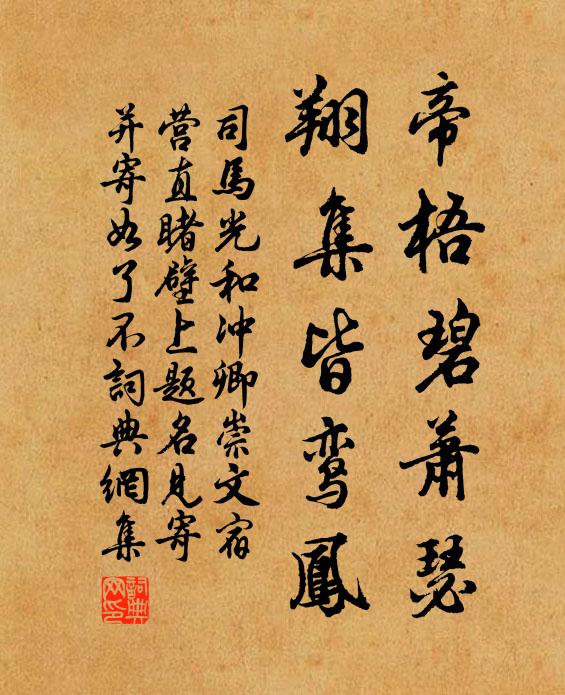 帝梧碧萧瑟
翔集皆鸾鳳
司馬光和冲卿崇文宿
营直睹壁上题名见寄
并寄如了不詞典網集
詞典网印